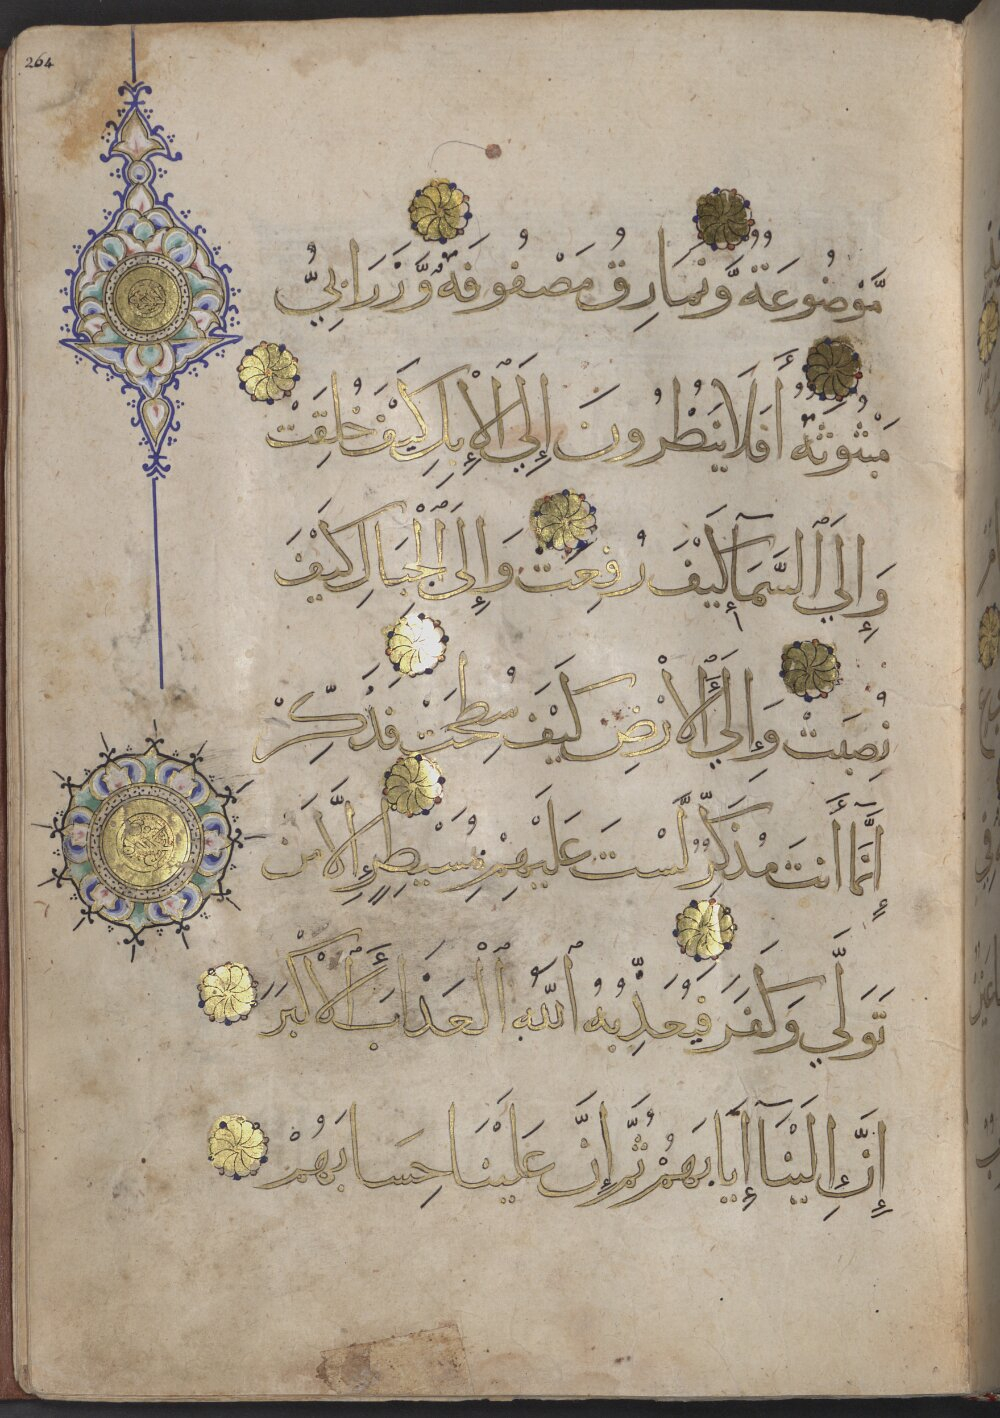 264
مَّوْضُوعَةٌ وَّنَمَارِقُ مَصْفُوفَةٌ وَّزَرَابِيُّ
مَبْثُوثَةٌ أَفَلَا يَنْظُرُونَ إِلَي الْإِبِلِ كَيْفَ خُلِقَتْ
وَإِلَي السَّمَآءِ كَيْفَ رُفِعَتْ وَإِلَى الْجِبَالِ كَيْفَ
نُصِبَتْ وَإِلَي الْأَرْضِ كَيْفَ سُطِحَتْ فَذَكِّرْ
إِنَّمَآ أَنتَ مُذَكِّرٌ لَّسْتَ عَلَيْهِمْ بِمُسَيْطِرٍ إِلَّا مَن
تَوَلَّي وَكَفَرَ فَيُعَذِّبُهُ اللَّهُ الْعَذَابَ الْأَكْبَرَ
إِنَّ إِلَيْنَآ إِيَابَهُمْ ثُمَّ إِنَّ عَلَيْنَا حِسَابَهُمْ